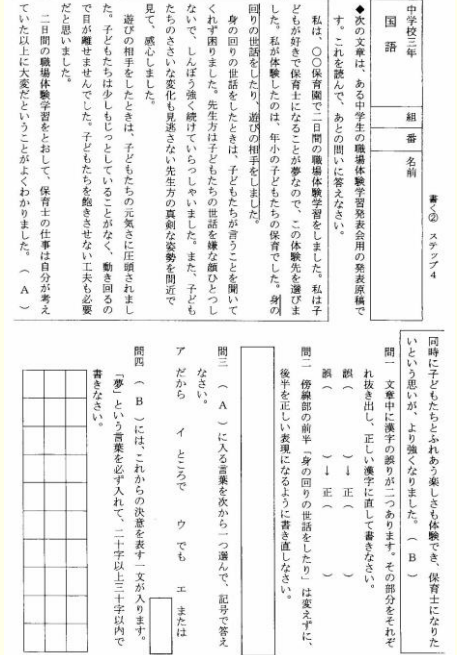 中学校三年
国語
組
番
名前
書く② ステップ4
◆次の文章は、ある中学生の職場体験学習発表会用の発表原稿で
す。これを読んで、あとの問いに答えなさい。
私は、〇〇保育園で二日間の職場体験学習をしました。私は子
どもが好きで保育士になることが夢なので、この体験先を選びま
した。私が体験したのは、年小の子どもたちの保育でした。身の
回りの世話をしたり、遊びの相手をしました。
身の回りの世話をしたときは、子どもたちが言うことを聞いて
くれず困りました。先生方は子どもたちの世話を嫌な顔ひとつし
ないで、しんぼう強く続けていらっしゃいました。また、子ども
たちのささいな変化も見逃さない先生方の真剣な姿勢を間近で
見て、感心しました。
遊びの相手をしたときは、子どもたちの元気さに圧頭されまし
た。子どもたちは少しもじっとしていることがなく、動き回るの
で目が離せませんでした。子どもたちを飽きさせない工夫も必要
だと思いました。
二日間の職場体験学習をとおして、保育士の仕事は自分が考え
ていた以上に大変だということがよくわかりました。（ A ）
同時に子どもたちとふれあう楽しさも体験でき、保育士になりた
いという思いが、より強くなりました。（ B ）
問一 文章中に漢字の誤りが二つあります。その部分をそれぞ
れ抜き出し、正しい漢字に直して書きなさい。
誤（ ）→ 正（ ）
誤（ ）→ 正（ ）
問二 傍線部の前半「身の回りの世話をしたり」は変えずに、
後半を正しい表現になるように書き直しなさい。
問三 （ A ）に入る言葉を次から一つ選んで、記号で答え
なさい。
ア だから イ ところで ウ でも エ または
問四 （ B ）には、これからの決意を表す一文が入ります。
「夢」という言葉を必ず入れて、二十字以上三十字以内で
書きなさい。